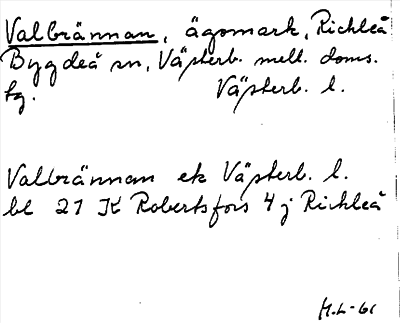 Valbrännan, ägomark, Richleå
Bygdeå sn, Västerb. mell. doms.
tg. Västerb. l.
Valbrännan ek Västerb. l.
bl 21 K Robertsfors 4 j Richleå
H.L-61